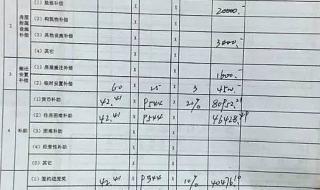 20000
2 房屋附属设施补偿 (2) 构筑物补偿
(3) 其他设施补偿 3000
(4) 其它
3 搬迁安置补偿 (1) 房屋搬迁补偿 1600
(2) 临时安置补偿 60 25 3 4500
(1) 货币补助 42.41 9544 20% 80952.21
4 补助 (2) 住房困难补助 42.41 9544
(3) 困难补助
(4) 经营性补助
(1) 签约进度奖 42.41 9544 10% 40476.10